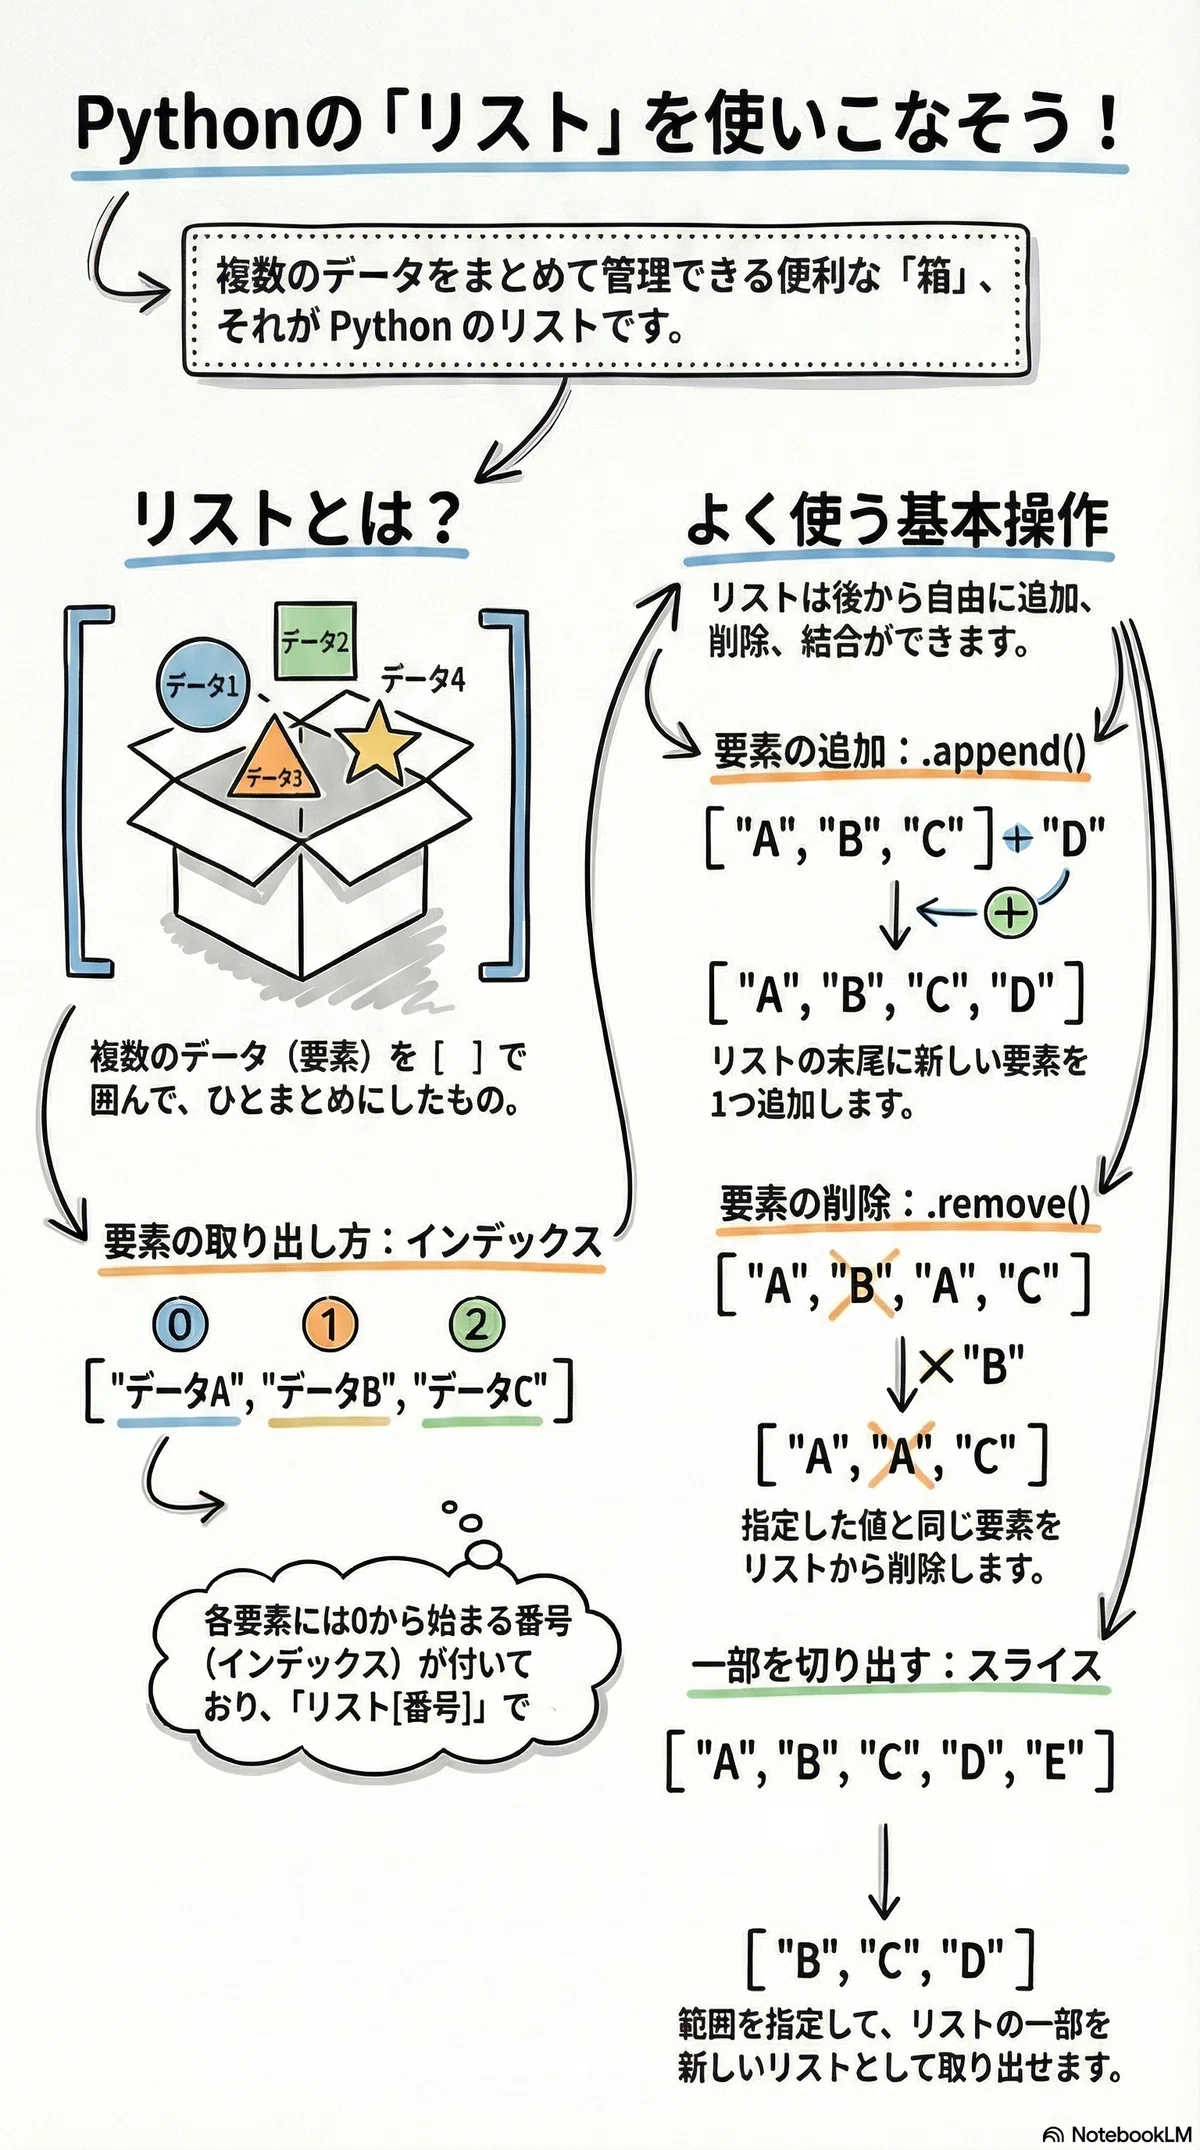 Pythonの「リスト」を使いこなそう！
複数のデータをまとめて管理できる便利な「箱」、
それが Python のリストです。
リストとは？
データ1
データ2
データ3
データ4
複数のデータ（要素）を [ ] で
囲んで、ひとまとめにしたもの。
要素の取り出し方：インデックス
0 1 2
["データA", "データB", "データC"]
各要素には0から始まる番号
（インデックス）が付いて
おり、「リスト[番号]」で
よく使う基本操作
リストは後から自由に追加、
削除、結合ができます。
要素の追加：.append()
["A", "B", "C"] + "D"
+
["A", "B", "C", "D"]
リストの末尾に新しい要素を
1つ追加します。
要素の削除：.remove()
["A", "B", "A", "C"]
×"B"
["A", "A", "C"]
指定した値と同じ要素を
リストから削除します。
一部を切り出す：スライス
["A", "B", "C", "D", "E"]
["B", "C", "D"]
範囲を指定して、リストの一部を
新しいリストとして取り出せます。
NotebookLM